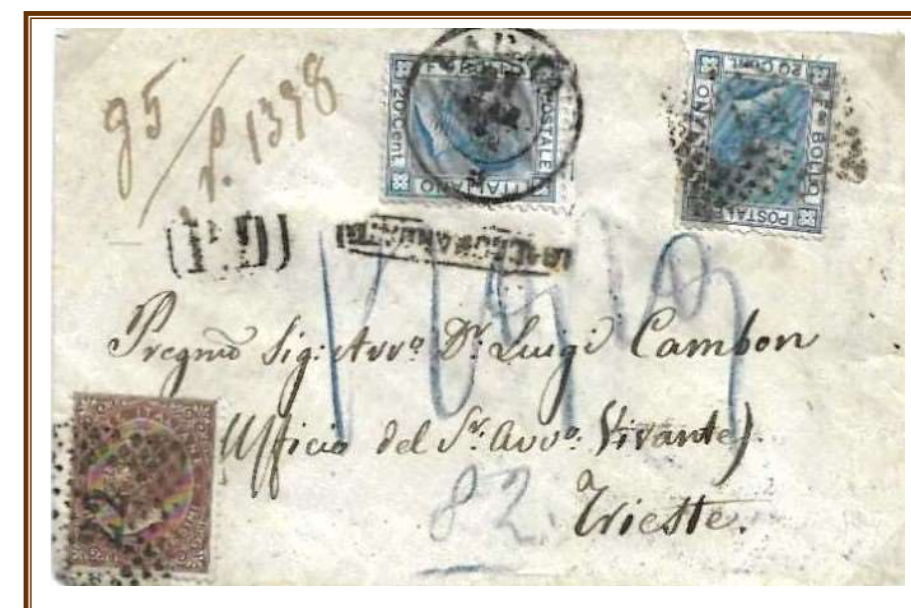 95
N. 1398
20 Cent.
POSTALE
ITALIANO
20 Cent.
F.co BOLLO
POSTALE
(P.D)
RACCOMANDATA
Pregmo Sig: Avvo. Dr. Luigi Cambon
Ufficio del Sr. Avvo. Vivante).
82.
Trieste.